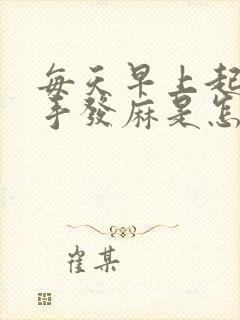 每天早上起
手發麻是怎
崔某